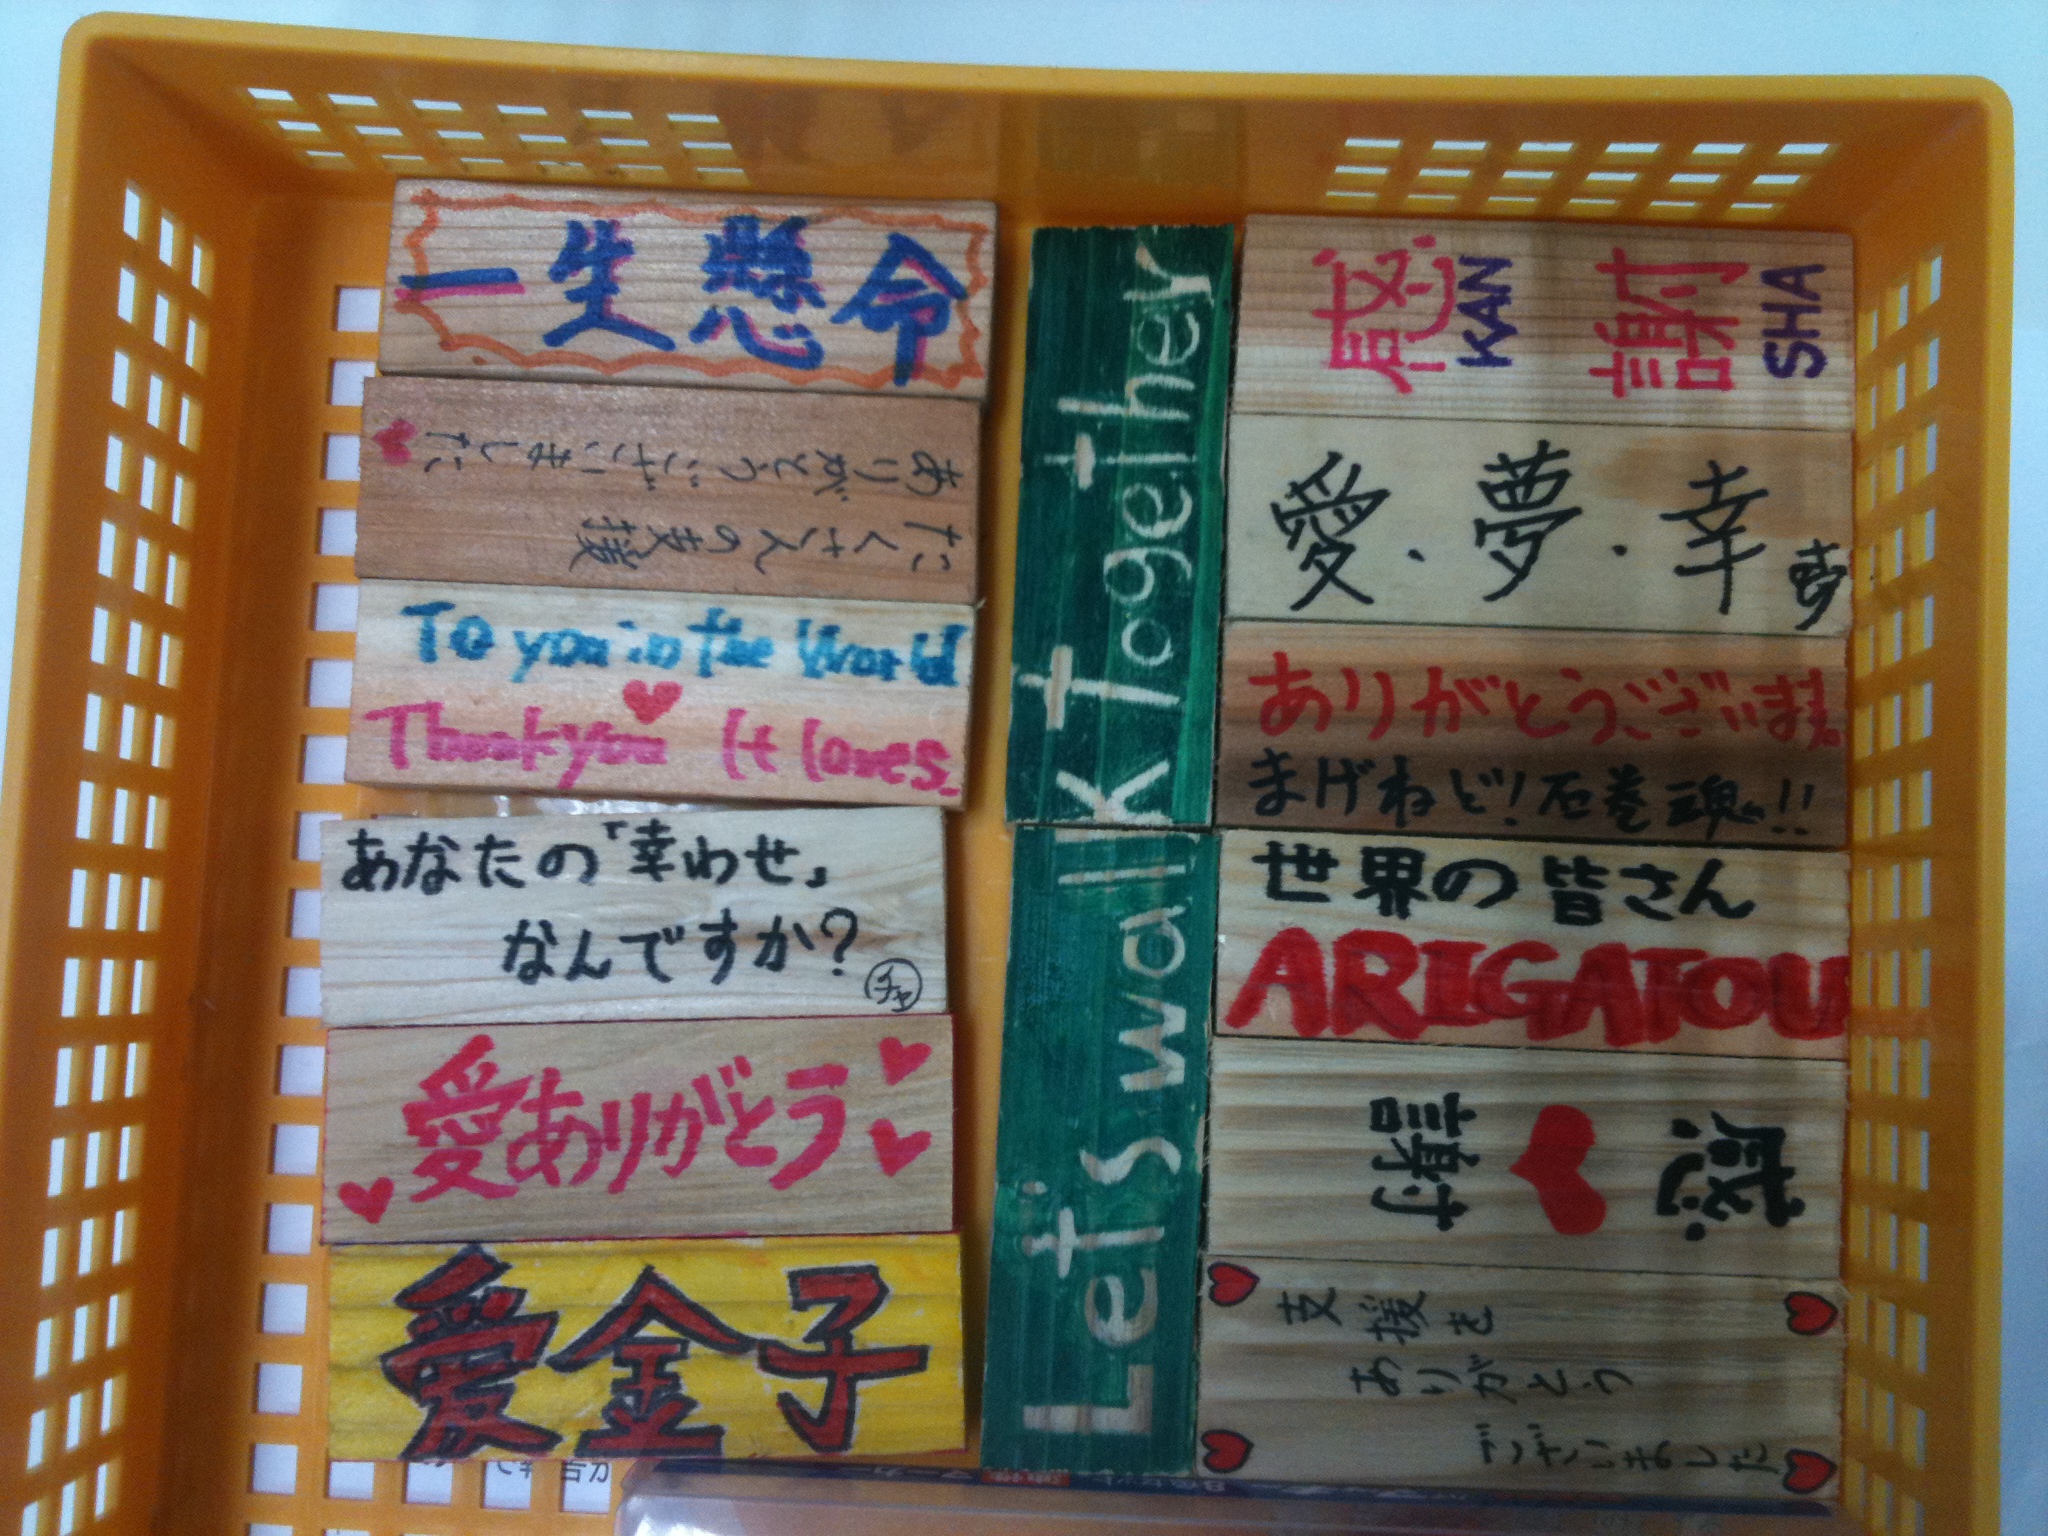 一生懸命
たくさんの支援
ありがとうございました
To you in the World
Thankyou It loves.
あなたの「幸わせ」
なんですか?
チャ
愛ありがとう
愛金子
Let's walk Together
感 KAN 謝 SHA
愛・夢・幸
ありがとうございます。
まげねど!石巻魂!!
世界の皆さん
ARIGATOU
感謝
支援を
ありがとう
ございました